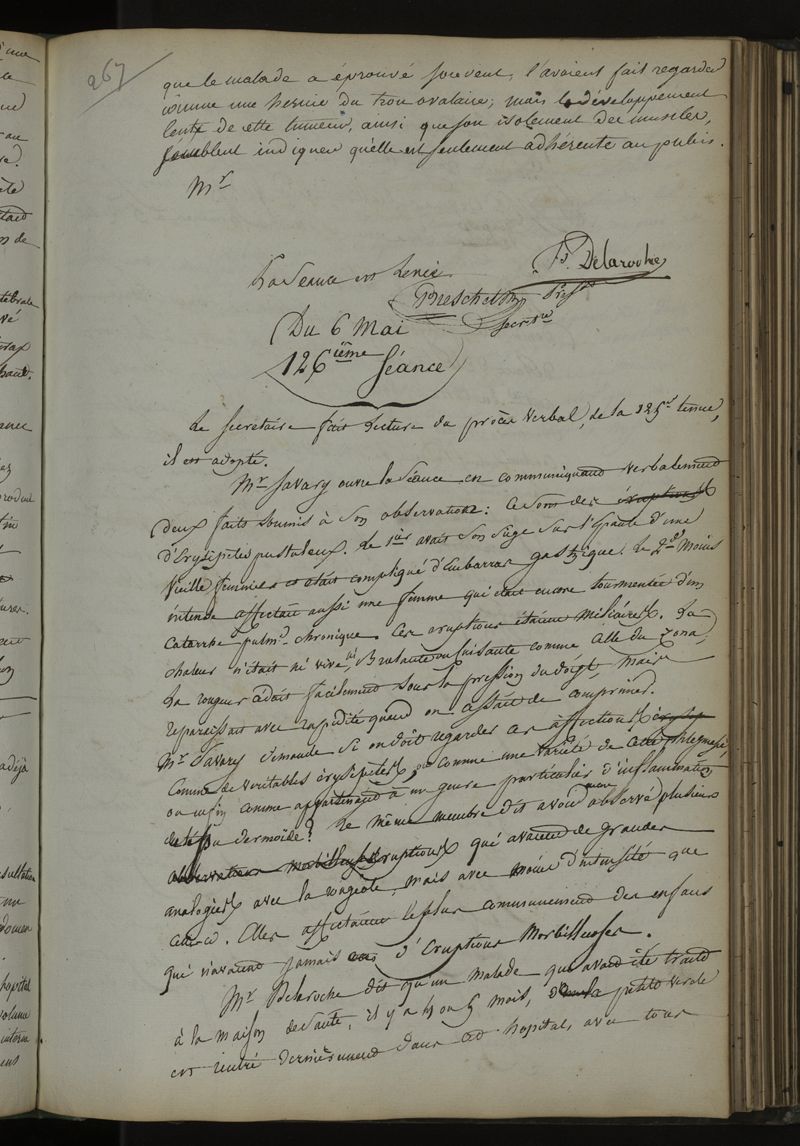 267
que le malade a éprouvé souvent, l'avaient fait regarder
comme une hernie du trou ovalaire; mais le développement
lente de cette tumeur, ainsi que son isolement des muscles,
semblent indiquer qu'elle est seulement adhérente au pubis.
Mr
La Séance est levée
F. Delaroche
Prést
Breschet
Secrre
Du 6 Mai
126ième Séance
Le Secretaire fait lecture du procès verbal, de la 125e tenue,
il est adopté.
Mr Savary ouvre la Séance en communiquant verbalement
deux faits soumis à son observation: Ce sont des éruptions
d'Erysipeles pustuleux. Le 1ier avait son siège sur l'Epaule d'une
vieille femme et était compliqué d'Embarras gastrique. Le 2me Moins
intense affectait aussi une femme qui était encore tourmentée d'un
Catarrhe pulmre chronique. Ces éruptions étaient Miliaires. La
chaleur n'était ni vive, ni Brulante ou cuisante comme celle du Zona,
La rougeur cédait facilement sous la pression du doigt, mais
reparaissait avec rapidité quand on cessait de comprimer.
Mr Savary demande si on doit regarder ces affections
Comme de véritables érysipèles, ou comme une variété de cette phlegmasie,
ou enfin comme appartenant à un genre particulier d'inflammation
du tissu dermoïde? Le même membre dit avoir observé plusieurs
éruptions qui avaient de grandes
analogies avec la rougeole, mais avec moins d'intensité que
celle-ci. Elles affectaient le plus communément des enfans
qui n'avaient jamais eu d'Eruptions Morbilleuses.
Mr Delaroche dit qu'un Malade qui avait été traité
à la maison de Santé, il y a 4 ou 5 mois, de la petite verole
est rentré dernièrement dans cet hopital, avec tous